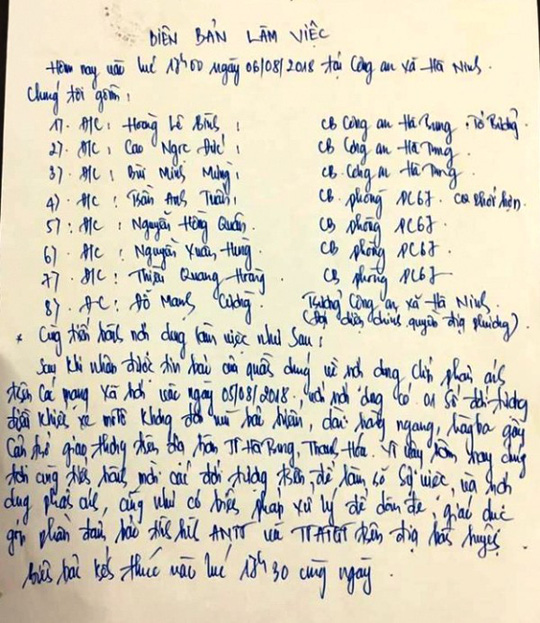 BIÊN BẢN LÀM VIỆC
Hôm nay vào lúc 17h00 ngày 06/08/2018 tại Công an xã Hà Ninh.
Chúng tôi gồm:
1). Đ/C: Hoàng Lê Bình; CB Công an Hà Trung, Tổ trưởng
2). Đ/C: Cao Ngọc Đức; CB Công an Hà Trung.
3). Đ/C: Bùi Minh Mừng; CB Công an Hà Trung.
4). Đ/C: Trần Anh Tuấn; CB phòng PC67. CQ phối hợp.
5). Đ/C: Nguyễn Hồng Quân. CB phòng PC67.
6). Đ/C: Nguyễn Xuân Hưng. CB phòng PC67
7). Đ/C: Thiều Quang Hoàng. CB phòng PC67
8). Đ/C: Đỗ Mạnh Cường. Trưởng Công an xã Hà Ninh.
(Đại diện chính quyền địa phương)
* Cùng tiến hành nội dung làm việc như sau:
Sau khi nhận được tin báo của quần chúng về nội dung clip phản ánh
trên các mạng xã hội vào ngày 05/08/2018, với nội dung có 01 số đối tượng
điều khiển xe mô tô không đội mũ bảo hiểm, dàn hàng ngang, hàng ba gây
cản trở giao thông trên địa bàn TT Hà Trung, Thanh Hóa. Vì vậy hôm nay chúng
tôi cùng tiến hành mời các đối tượng trên để làm rõ sự việc, và nội
dung phản ánh, cũng như có biện pháp xử lý để răn đe, giáo dục
góp phần đảm bảo tình hình ANTT và TTATGT trên địa bàn huyện
biên bản kết thúc vào lúc 17h30 cùng ngày.